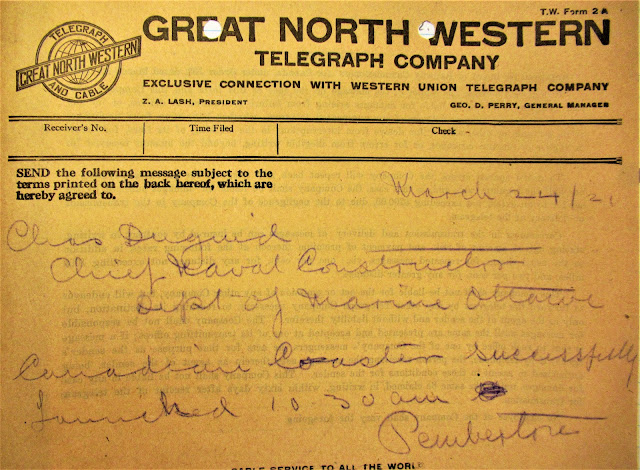 T.W. Form 2 A
TELEGRAPH
GREAT NORTH WESTERN
AND CABLE
GREAT NORTH WESTERN
TELEGRAPH COMPANY
EXCLUSIVE CONNECTION WITH WESTERN UNION TELEGRAPH COMPANY
Z. A. LASH, PRESIDENT GEO. D. PERRY, GENERAL MANAGER
Receiver's No. Time Filed Check
SEND the following message subject to the
terms printed on the back hereof, which are
hereby agreed to.
March 24/21
Chas Duguid
Chief Naval Constructor
Dept of Marine Ottawa
Canadian Coaster Successfully
Launched 10 30 am
Pemberton
CABLE SERVICE TO ALL THE WORLD